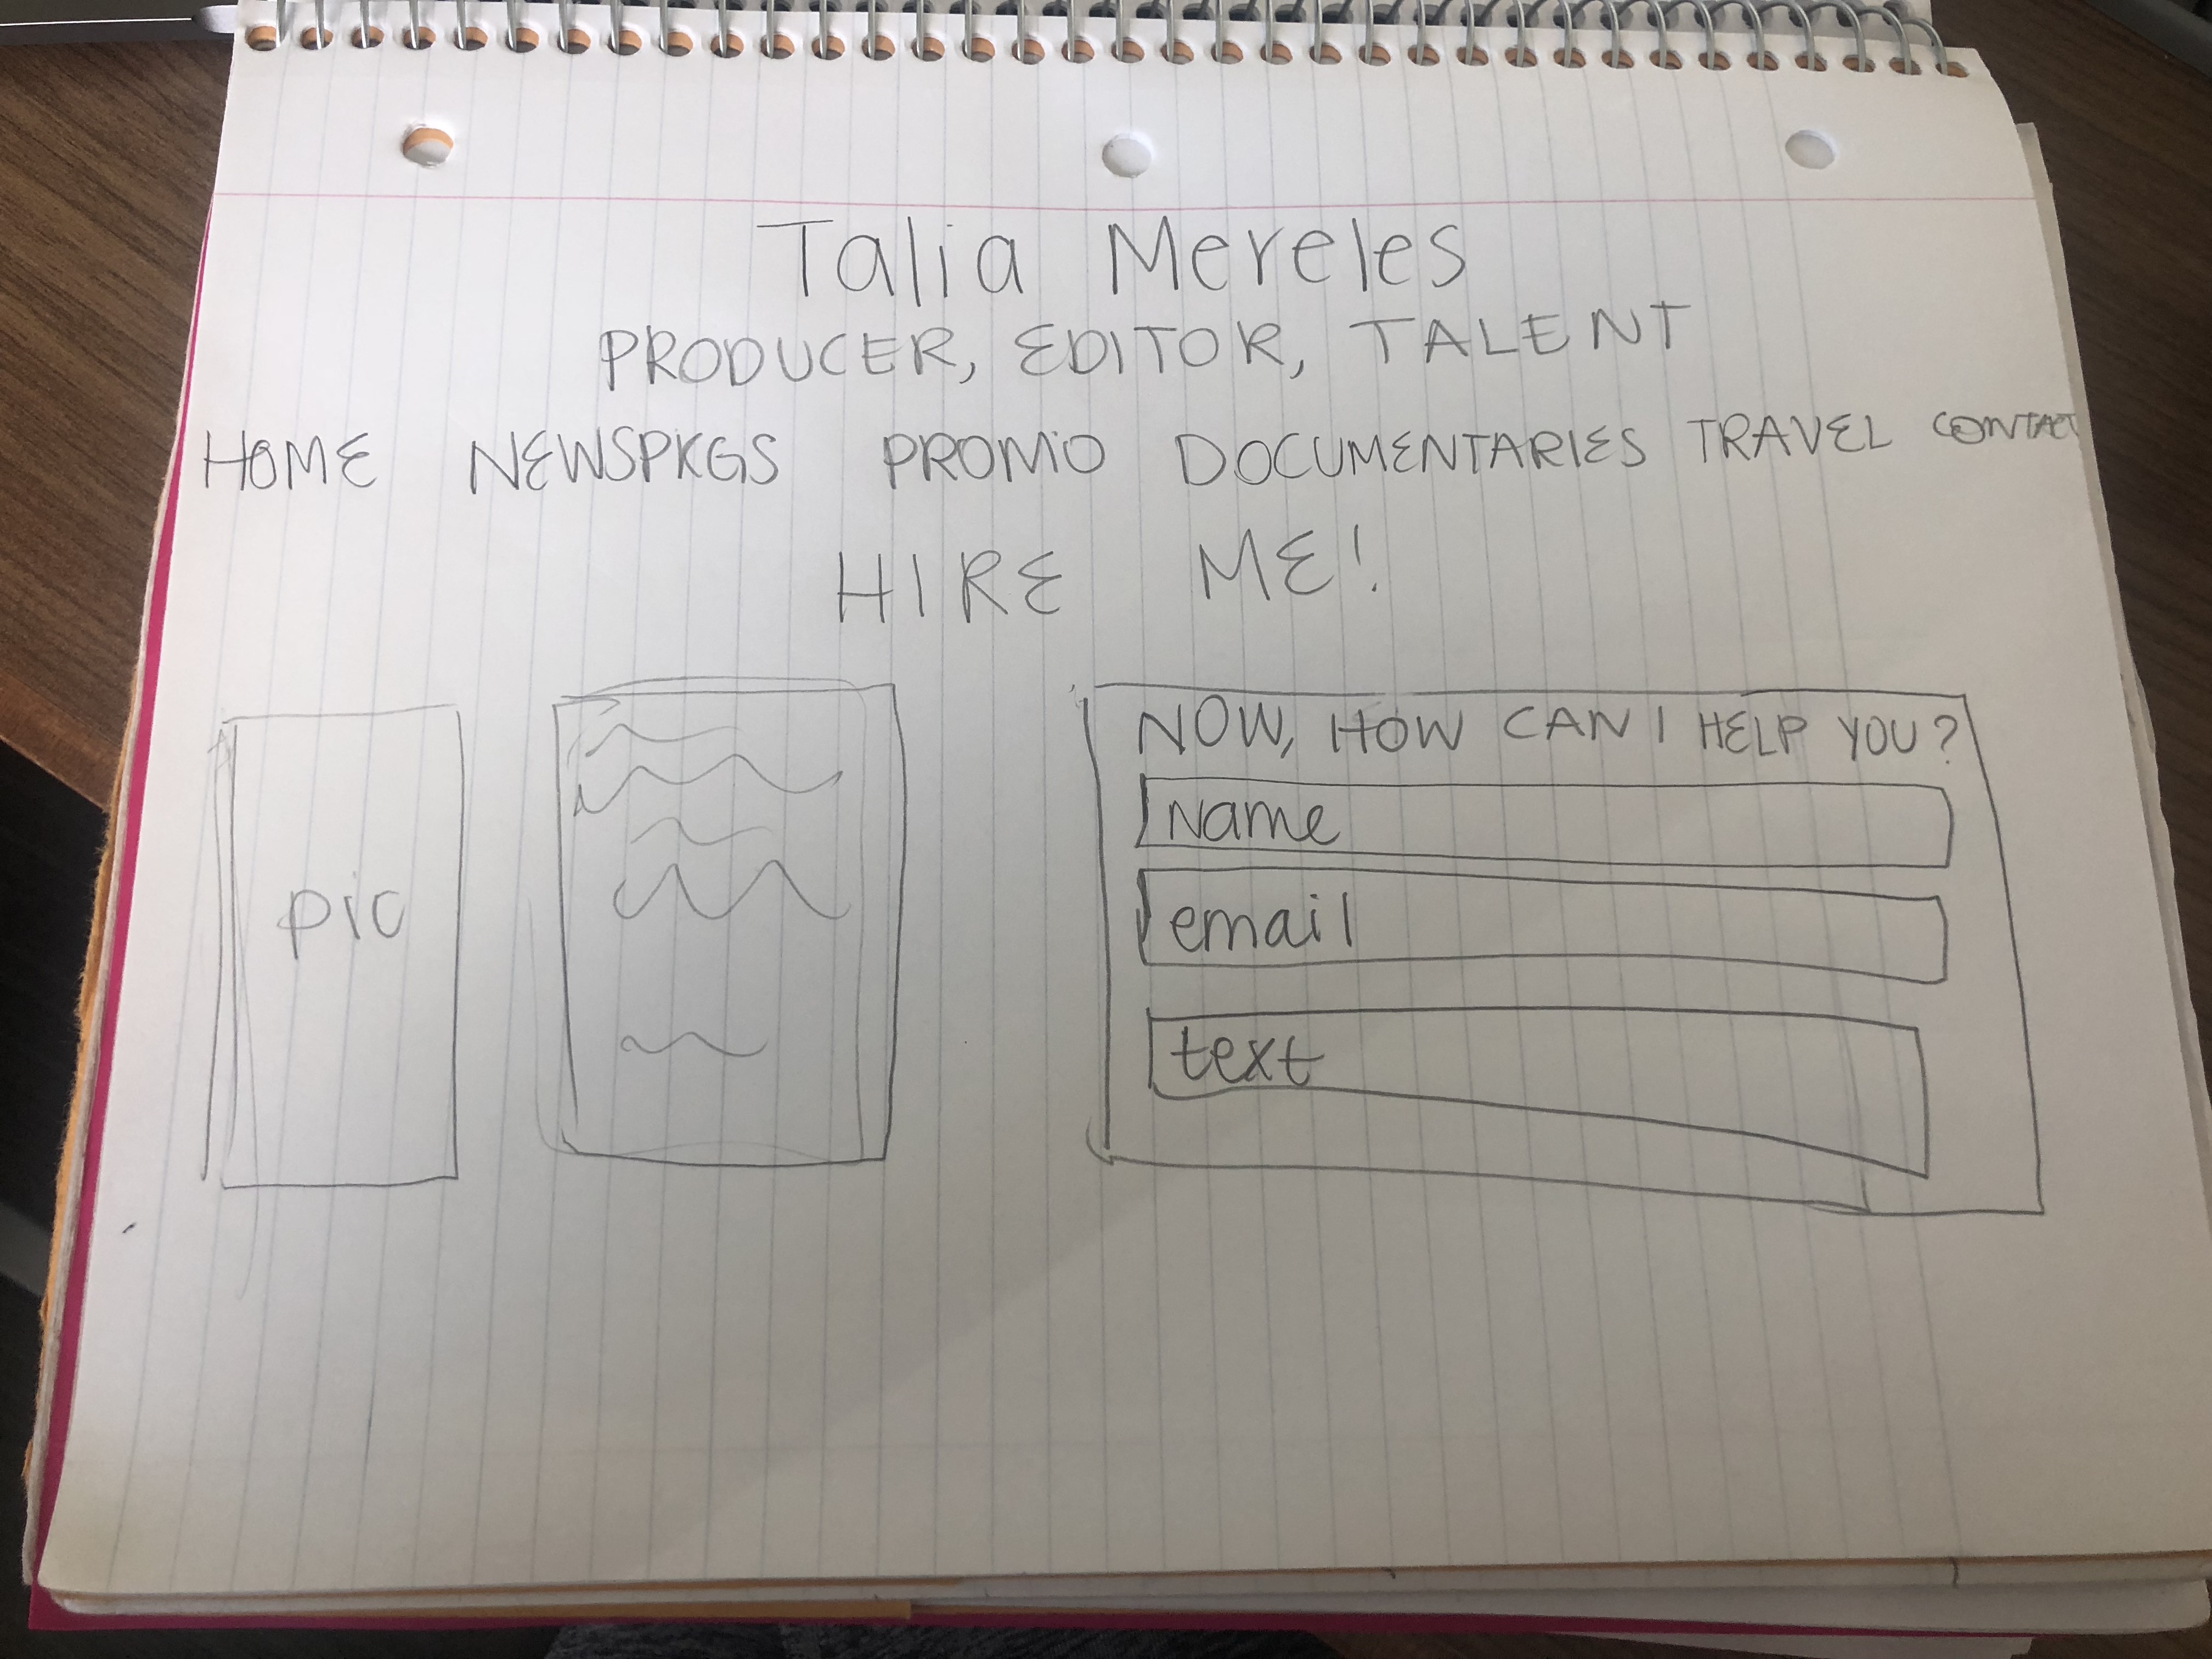 Talia Mereles
PRODUCER, EDITOR, TALENT
HOME NEWSPKGS PROMO DOCUMENTARIES TRAVEL CONTACT
HIRE ME!
pic
NOW, HOW CAN I HELP YOU?
Name
email
text